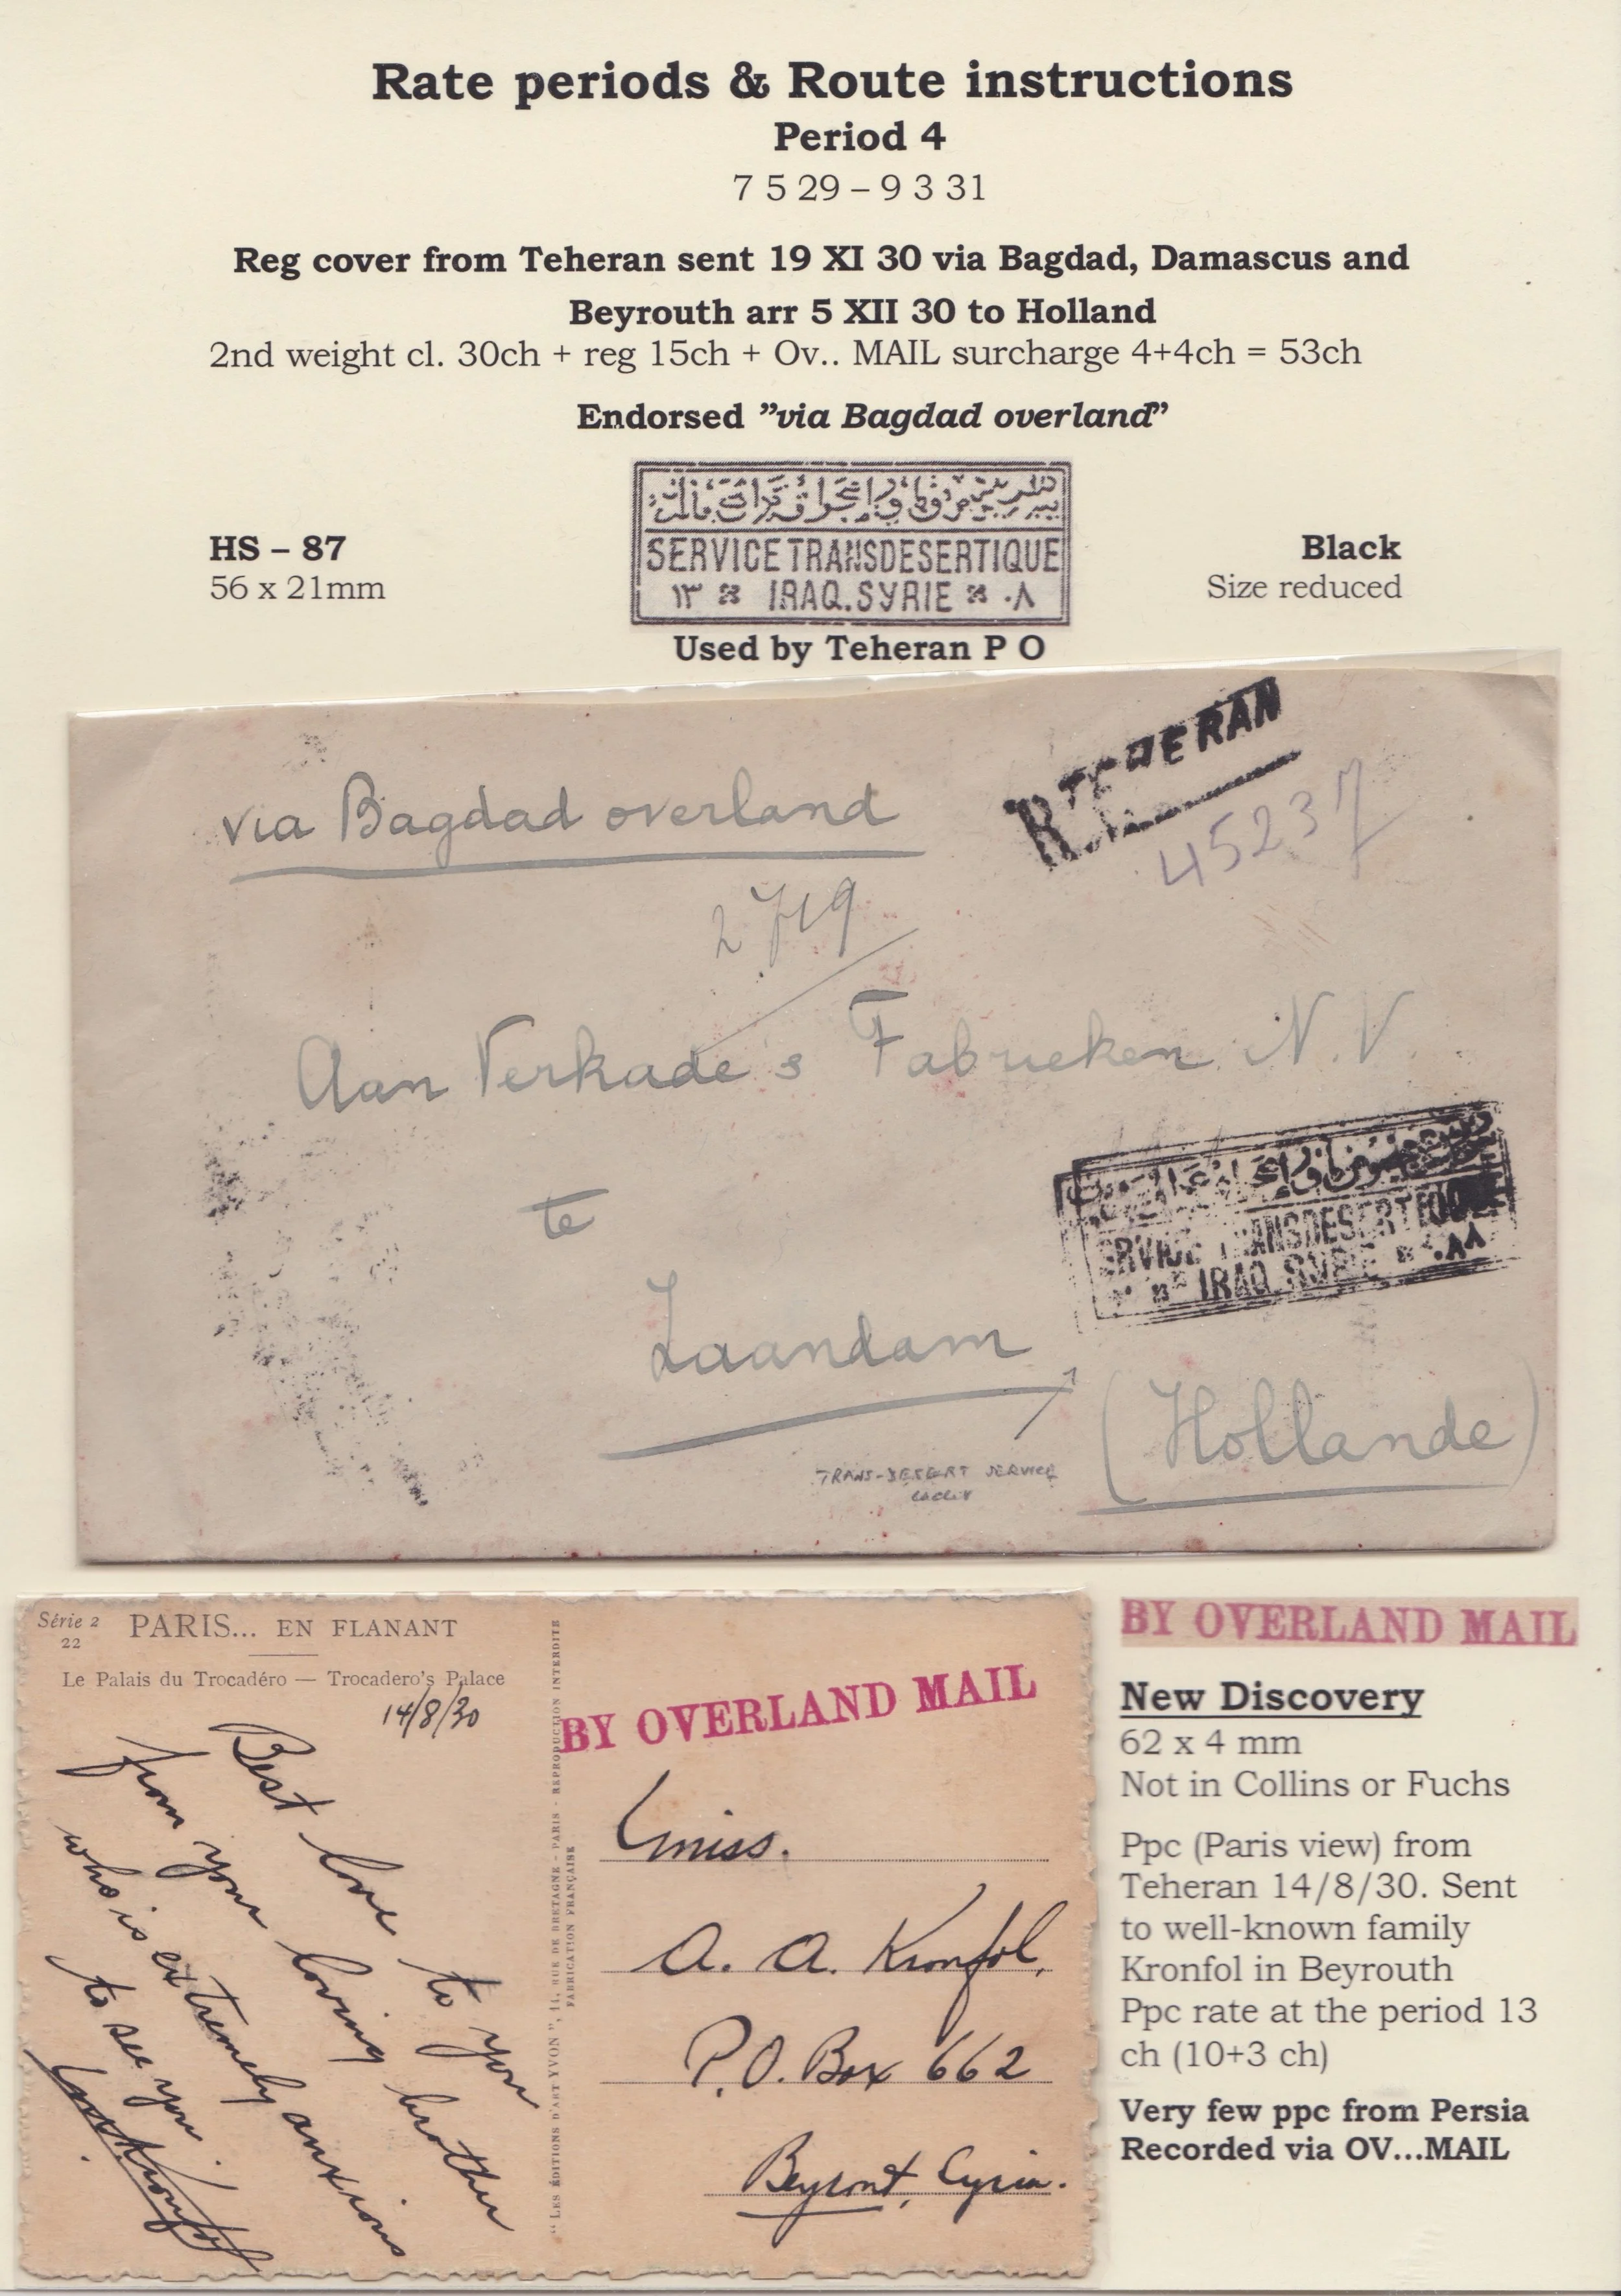 Rate periods & Route instructions
Period 4
7 5 29 – 9 3 31
Reg cover from Teheran sent 19 XI 30 via Bagdad, Damascus and
Beyrouth arr 5 XII 30 to Holland
2nd weight cl. 30ch + reg 15ch + Ov.. MAIL surcharge 4+4ch = 53ch
Endorsed ”via Bagdad overland”
HS – 87
56 x 21mm
SERVICE TRANSDESERTIQUE
١٣ IRAQ.SYRIE ٠٨
Black
Size reduced
Used by Teheran P O
R TEHERAN
via Bagdad overland
45237
2719
Aan Verkade's Fabrieken N.V.
te
SERVICE TRANSDESERTIQUE
IRAQ.SYRIE
Zaandam
(Hollande)
TRANS-DESERT SERVICE
Série 2
22
PARIS... EN FLANANT
Le Palais du Trocadéro — Trocadero's Palace
14/8/30
Best love to you
from your loving brother
who is extremely anxious
to see you.
"LES ÉDITIONS D'ART YVON", 11, RUE DE BRETAGNE - PARIS - REPRODUCTION INTERDITE
FABRICATION FRANÇAISE
BY OVERLAND MAIL
Miss.
A. A. Kronfol,
P.O. Box 662
Beyrout, Syria.
BY OVERLAND MAIL
New Discovery
62 x 4 mm
Not in Collins or Fuchs
Ppc (Paris view) from
Teheran 14/8/30. Sent
to well-known family
Kronfol in Beyrouth
Ppc rate at the period 13
ch (10+3 ch)
Very few ppc from Persia
Recorded via OV...MAIL